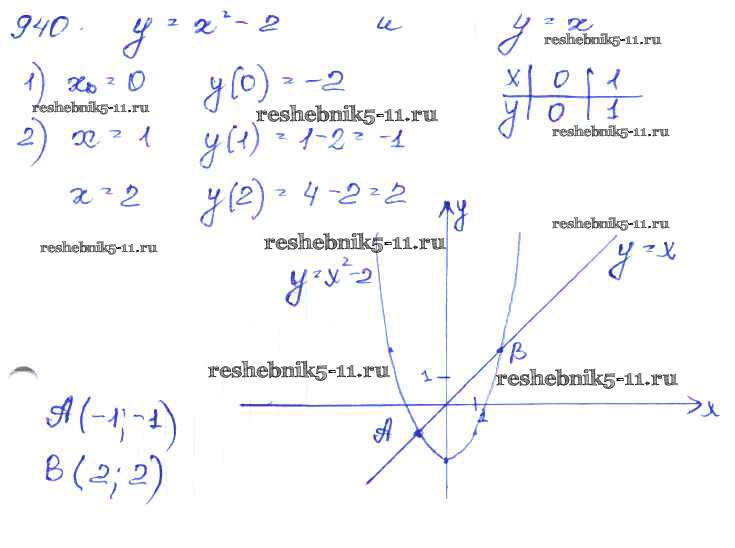 940. y = x² - 2 и y = x
reshebnik5-11.ru
1) x₀ = 0 y(0) = -2
x | 0 | 1
y | 0 | 1
reshebnik5-11.ru
reshebnik5-11.ru
reshebnik5-11.ru
2) x = 1 y(1) = 1-2 = -1
x = 2 y(2) = 4-2 = 2
y
reshebnik5-11.ru
reshebnik5-11.ru
reshebnik5-11.ru
y = x
y = x² - 2
B
reshebnik5-11.ru
1
reshebnik5-11.ru
1
x
A(-1; -1)
A
B(2; 2)